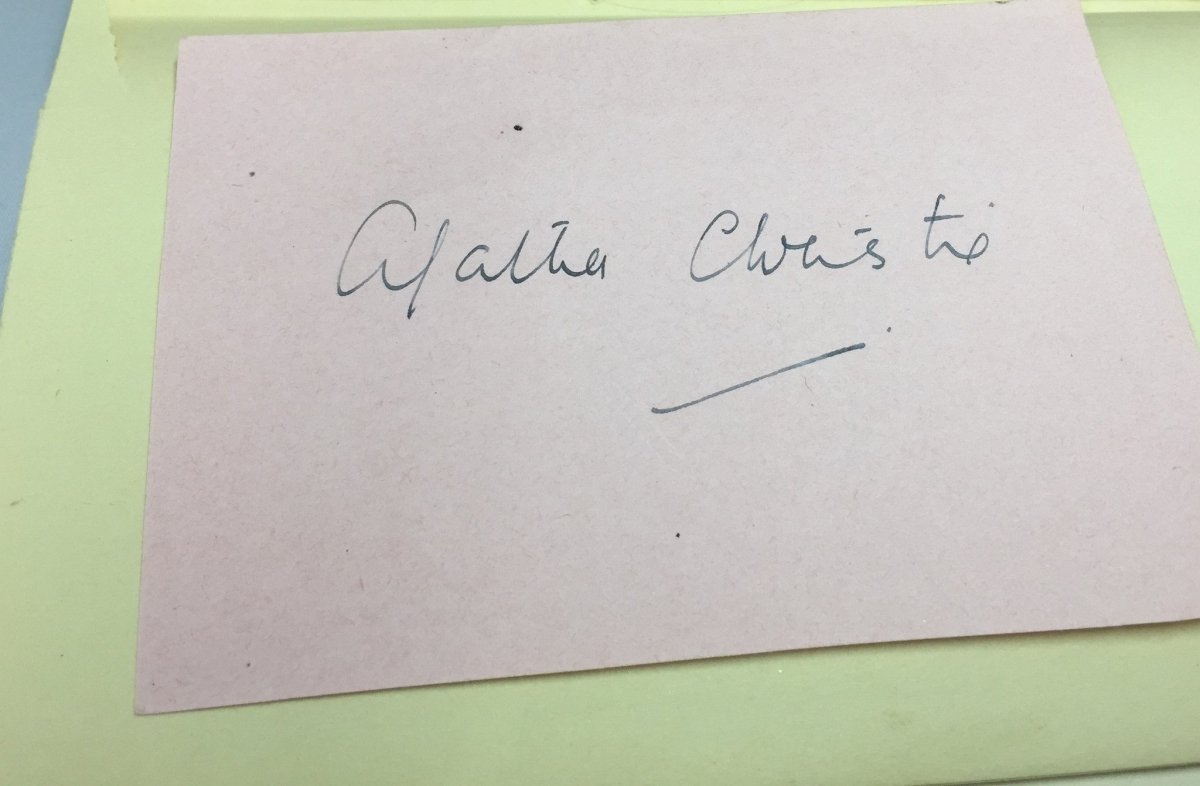 Agatha Christie